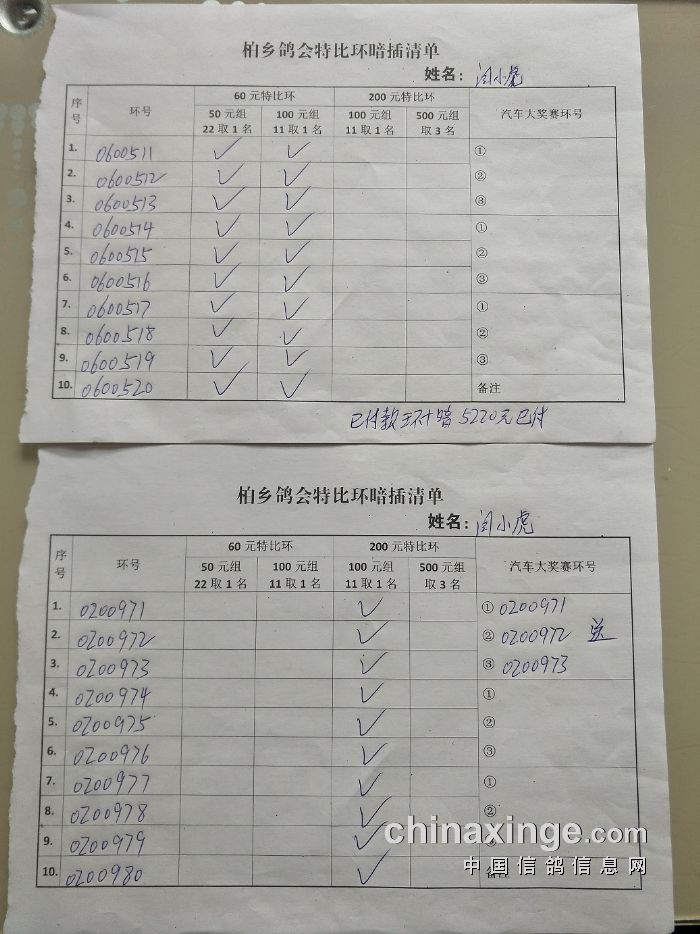 柏乡鸽会特比环暗插清单
姓名：闫小虎
序号 环号 60元特比环 200元特比环 汽车大奖赛环号
50元组 22取1名 100元组 11取1名 100元组 11取1名 500元组 取3名
1. 0600511 ✓ ✓ ①
2. 0600512 ✓ ✓ ②
3. 0600513 ✓ ✓ ③
4. 0600514 ✓ ✓ ①
5. 0600515 ✓ ✓ ②
6. 0600516 ✓ ✓ ③
7. 0600517 ✓ ✓ ①
8. 0600518 ✓ ✓ ②
9. 0600519 ✓ ✓ ③
10. 0600520 ✓ ✓ 备注
已付款环十暗 5220元已付
柏乡鸽会特比环暗插清单
姓名：闫小虎
序号 环号 60元特比环 200元特比环 汽车大奖赛环号
50元组 22取1名 100元组 11取1名 100元组 11取1名 500元组 取3名
1. 0200971 ✓ ① 0200971
2. 0200972 ✓ ② 0200972 送
3. 0200973 ✓ ③ 0200973
4. 0200974 ✓ ①
5. 0200975 ✓ ②
6. 0200976 ✓ ③
7. 0200977 ✓ ①
8. 0200978 ✓ ②
9. 0200979 ✓ ③
10. 0200980 ✓ 备注
chinaxinge.com
中国信鸽信息网